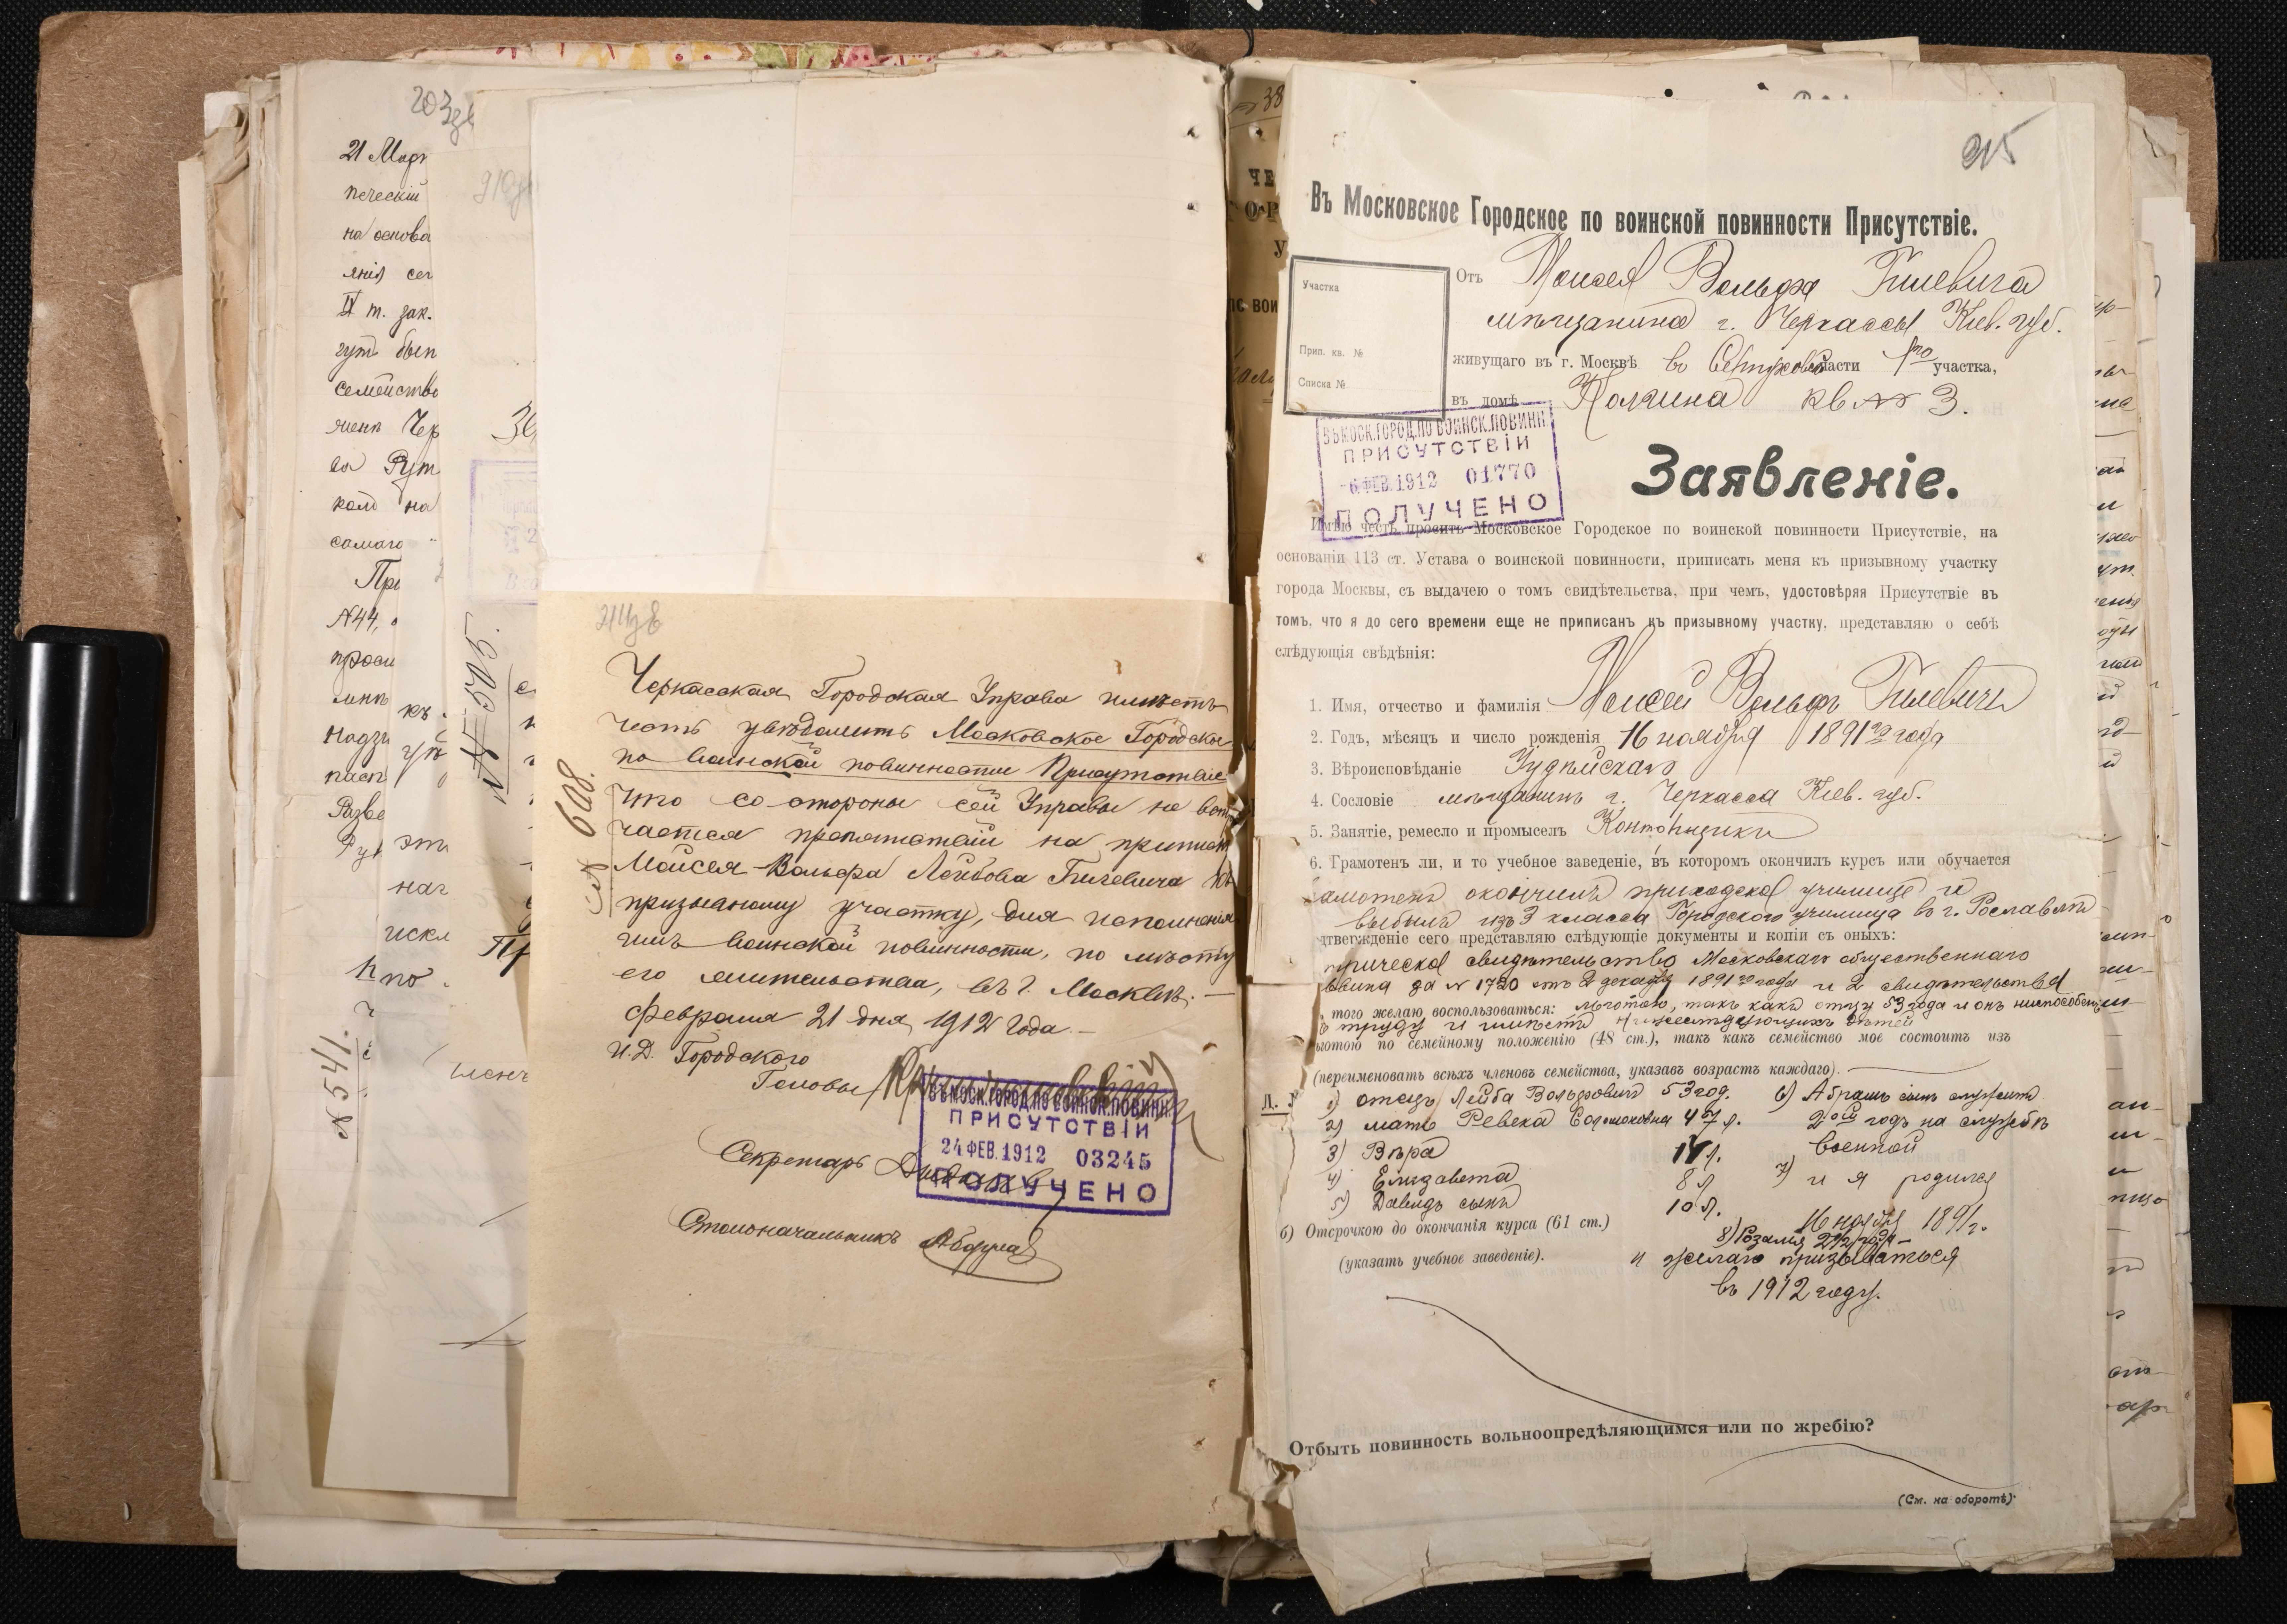 203
21 Мар
печескій
на основа
IX т. зак.
гутъ был
семейство
Чер
Рут
колъ на
самаго
При
№44, о
проси
надзи
къ
Разве
Рув
эти
наг
искл
по
№ 541.
№ 505.
Пр
членъ
214 об
Черкасская Городская Управа имѣетъ
честь увѣдомить Московское Городское
по воинской повинности Присутствіе
что со стороны сей Управы не вст
чается препятствій на приписк
Мойсея-Вольфа Лейбова Гилевича къ
призывному участку, для исполненія
имъ воинской повинности, по мѣсту
его жительства, въ г. Москвѣ. —
Февраля 21 дня 1912 года. —
И.Д. Городского
Головы
Секретарь
Столоначальникъ
№ 608.
ВЪ МОСК. ГОРОД. ПО ВОИНСК. ПОВИНН
ПРИСУТСТВІИ
24 ФЕВ. 1912 03245
ПОЛУЧЕНО
38
ЧЕ
ГОР
У
по вои
215
Въ Московское Городское по воинской повинности Присутствіе.
Участка
Прип. кв. №
Списка №
Отъ Моисея Вольфа Гилевича
мѣщанина г. Черкассы Кіев. губ.
живущаго въ г. Москвѣ во Серпуховской части 1го участка,
въ домѣ кв № 3.
ВЪ МОСК. ГОРОД. ПО ВОИНСК. ПОВИНН
ПРИСУТСТВІИ
-6 ФЕВ. 1912 01770
ПОЛУЧЕНО
Заявленіе.
Имѣю честь просить Московское Городское по воинской повинности Присутствіе, на
основаніи 113 ст. Устава о воинской повинности, приписать меня къ призывному участку
города Москвы, съ выдачею о томъ свидѣтельства, при чемъ, удостовѣряя Присутствіе въ
томъ, что я до сего времени еще не приписанъ къ призывному участку, представляю о себѣ
слѣдующія свѣдѣнія:
1. Имя, отчество и фамилія Моисей Вольфъ Гилевичъ
2. Годъ, мѣсяцъ и число рожденія 16 ноября 1891го года
3. Вѣроисповѣданіе Іудейскаго
4. Сословіе мѣщанинъ г. Черкасса Кіев. губ.
5. Занятіе, ремесло и промыселъ Конторщикъ
6. Грамотенъ ли, и то учебное заведеніе, въ которомъ окончилъ курсъ или обучается
амотенъ окончилъ приходское училище и
выбылъ изъ 3 класса Городского училища въ г. Рославлѣ
дтвержденіе сего представляю слѣдующіе документы и копіи съ оныхъ:
трическое свидѣтельство Московскаго общественнаго
ввина за № 1720 отъ 2 декабр 1891го года и 2 свидѣтельства
того желаю воспользоваться: льготою, такъ какъ отцу 53 года и онъ неспособенъ
ъ труду и имѣетъ
ьготою по семейному положенію (48 ст.), такъ какъ семейство мое состоитъ изъ
(переименовать всѣхъ членовъ семейства, указавъ возрастъ каждаго).
1) отецъ Лейба Вольфовичъ 53 год. 6) Абрамъ сынъ служитъ
2) мать Ревека Соломоновна 47 л. 2ой годъ на службѣ
3) Вѣра военной
4) Елизавета 8 л. 7) и я родился
5) Давидъ сынъ 10 л. 16 ноября 1891 г.
б) Отсрочкою до окончанія курса (61 ст.) 8) Розалія 2 1/2 года —
(указать учебное заведеніе). и желаю призываться
въ 1912 году.
Отбыть повинность вольноопредѣляющимся или по жребію?
(См. на оборотѣ).